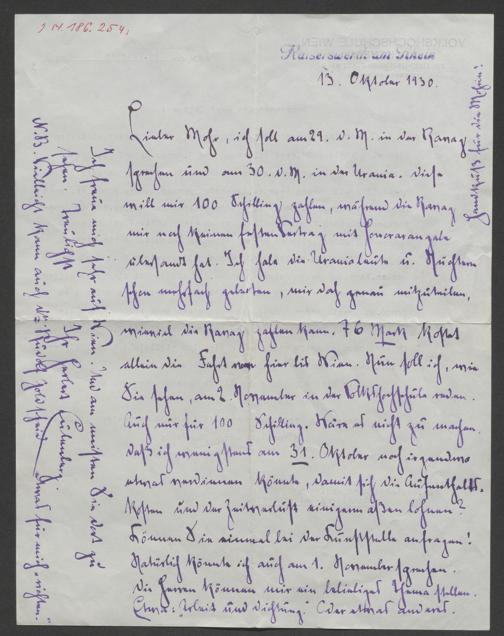 J.N. 186.254.
Kaiserswerth am Rhein
13. Oktober 1930.
Lieber Mohr, ich soll am 29. d. M. in der Ravag
sprechen und am 30. d. M. in der Urania. Diese
will mir 100 Schilling zahlen, während die Ravag
mir noch keinen festen Vertrag mit Honorarangabe
übersandt hat. Ich habe die Uraniabeute u. Nüchtern
schon mehrfach gebeten, mir doch genau mitzuteilen,
wieviel die Ravag zahlen kann. 76 Mark kostet
allein die Fahrt von hier bis Wien. Nun soll ich, wie
Sie sehen, am 2. November in der Volkshochschule reden.
Auch nur für 100 Schilling. Wäre es nicht zu machen,
daß ich wenigstens am 31. Oktober noch irgendwo
etwas verdienen könnte, damit sich die Aufenthalts-
kosten und der Zeitverlust einigermaßen lohnen?
Können Sie einmal bei der Kunststelle anfragen!
Natürlich könnte ich auch am 1. November sprechen.
Die Herren können mir ein beliebiges Thema stellen.
Etwa: Arbeit und Dichtung! Oder etwas anderes.
Ich freue mich sehr auf Wien. Und am meisten Sie dort zu
sehen. Treulichst
Ihr Herbert Eulenberg.
N.B. Vielleicht kann auch Dr. Rudolf Holzer etwas für mich „richten".
Handkuß für die Mohrin!